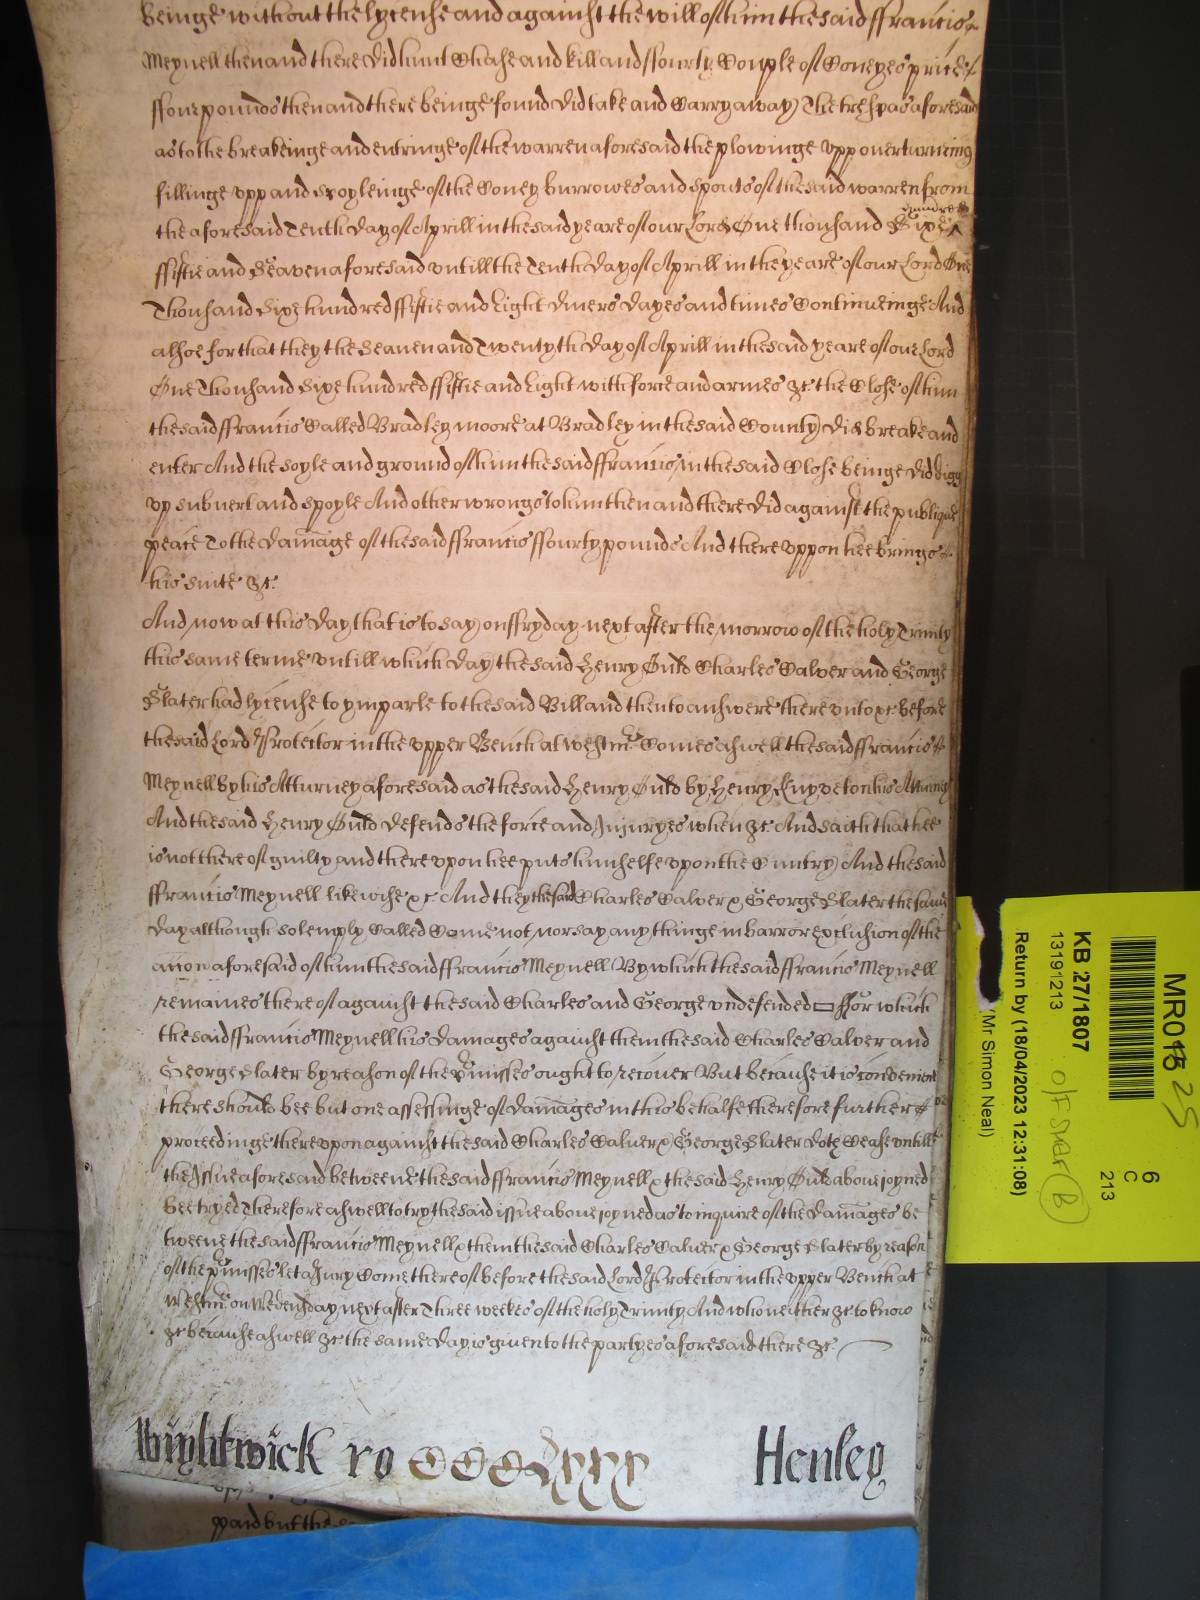 beinge without the lycense and against the will of him the said ffrancis
Meynell then and there did hunt Chase and kill and ffourty Couple of Coneyes price of
ffoure pounds then and there beinge found did take and Carry away The trespas aforesaid
as to the breakeinge and entringe of the warren aforesaid the plowinge upp overturneing
fillinge upp and spoyleinge of the Coney burrowes and spouts of the said warren from
the aforesaid Tenth day of Aprill in the said yeare of our Lord One thousand Sixe hundred
ffiftie and Seaven aforesaid untill the Tenth day of Aprill in the yeare of our Lord One
Thousand Sixe hundred ffiftie and Eight divers dayes and times Continueinge And
alsoe for that they the Seaven and Twentyth day of Aprill in the said yeare of our Lord
One Thousand Sixe hundred ffiftie and Eight with force and armes &c the Close of him
the said ffrancis Called Bradley moore at Bradley in the said County did breake and
enter And the soyle and ground of him the said ffrancis in the said Close beinge did digg
up subvert and spoyle And other wrongs to him then and there did against the publique
peace To the damage of the said ffrancis ffourty pounds And there uppon hee brings
his suite &c.
And now at this day that is to say on ffryday next after the morrow of the holy Trinity
this same terme untill which day the said Henry Ould Charles Calver and George
Slater had lycense to ymparle to the said Bill and then to answere there unto &c before
the said Lord Protector in the upper Bench at Westmr Comes aswell the said ffrancis
Meynell by his Atturney aforesaid as the said Henry Ould by Henry Knyveton his Atturney
And the said Henry Ould defends the force and Injuryes when &c And saith that hee
is not there of guilty and there upon hee puts himselfe upon the Cuntry And the said
ffrancis Meynell likewise &c And they the said Charles Calver & George Slater the same
day although solemply Called Come not nor say any thinge in barr or exclusion of the
accion aforesaid of him the said ffrancis Meynell By which the said ffrancis Meynell
remaines there of against the said Charles and George undefended ffor which
the said ffrancis Meynell his damages against them the said Charles Calver and
George Slater by reason of the Pmisses ought to recover But because it is convenient
there should bee but one assessinge of damages in this behalfe therefore further
proceedinge there upon against the said Charles Calver & George Slater doth Cease untill
the Issue aforesaid betweene the said ffrancis Meynell & the said Henry Ould above joyned
bee tryed Therefore aswell to try the said issue above joyned as to inquire of the damages be
tweene the said ffrancis Meynell & them the said Charles Calver & George Slater by reason
of the Pmisses let a Jury Come there of before the said Lord Protector in the upper Bench at
Westmr on Wedensday next after Three weekes of the holy Trinity And who neither &c to know
&c because aswell &c the same day is given to the partyes aforesaid there &c.
Wightwick ro CCCClxxx Henley
paid but the
MR015
25
6
C
213
KB 27/1807
13191213
Return by (18/04/2023 12:31:08)
(Mr Simon Neal)